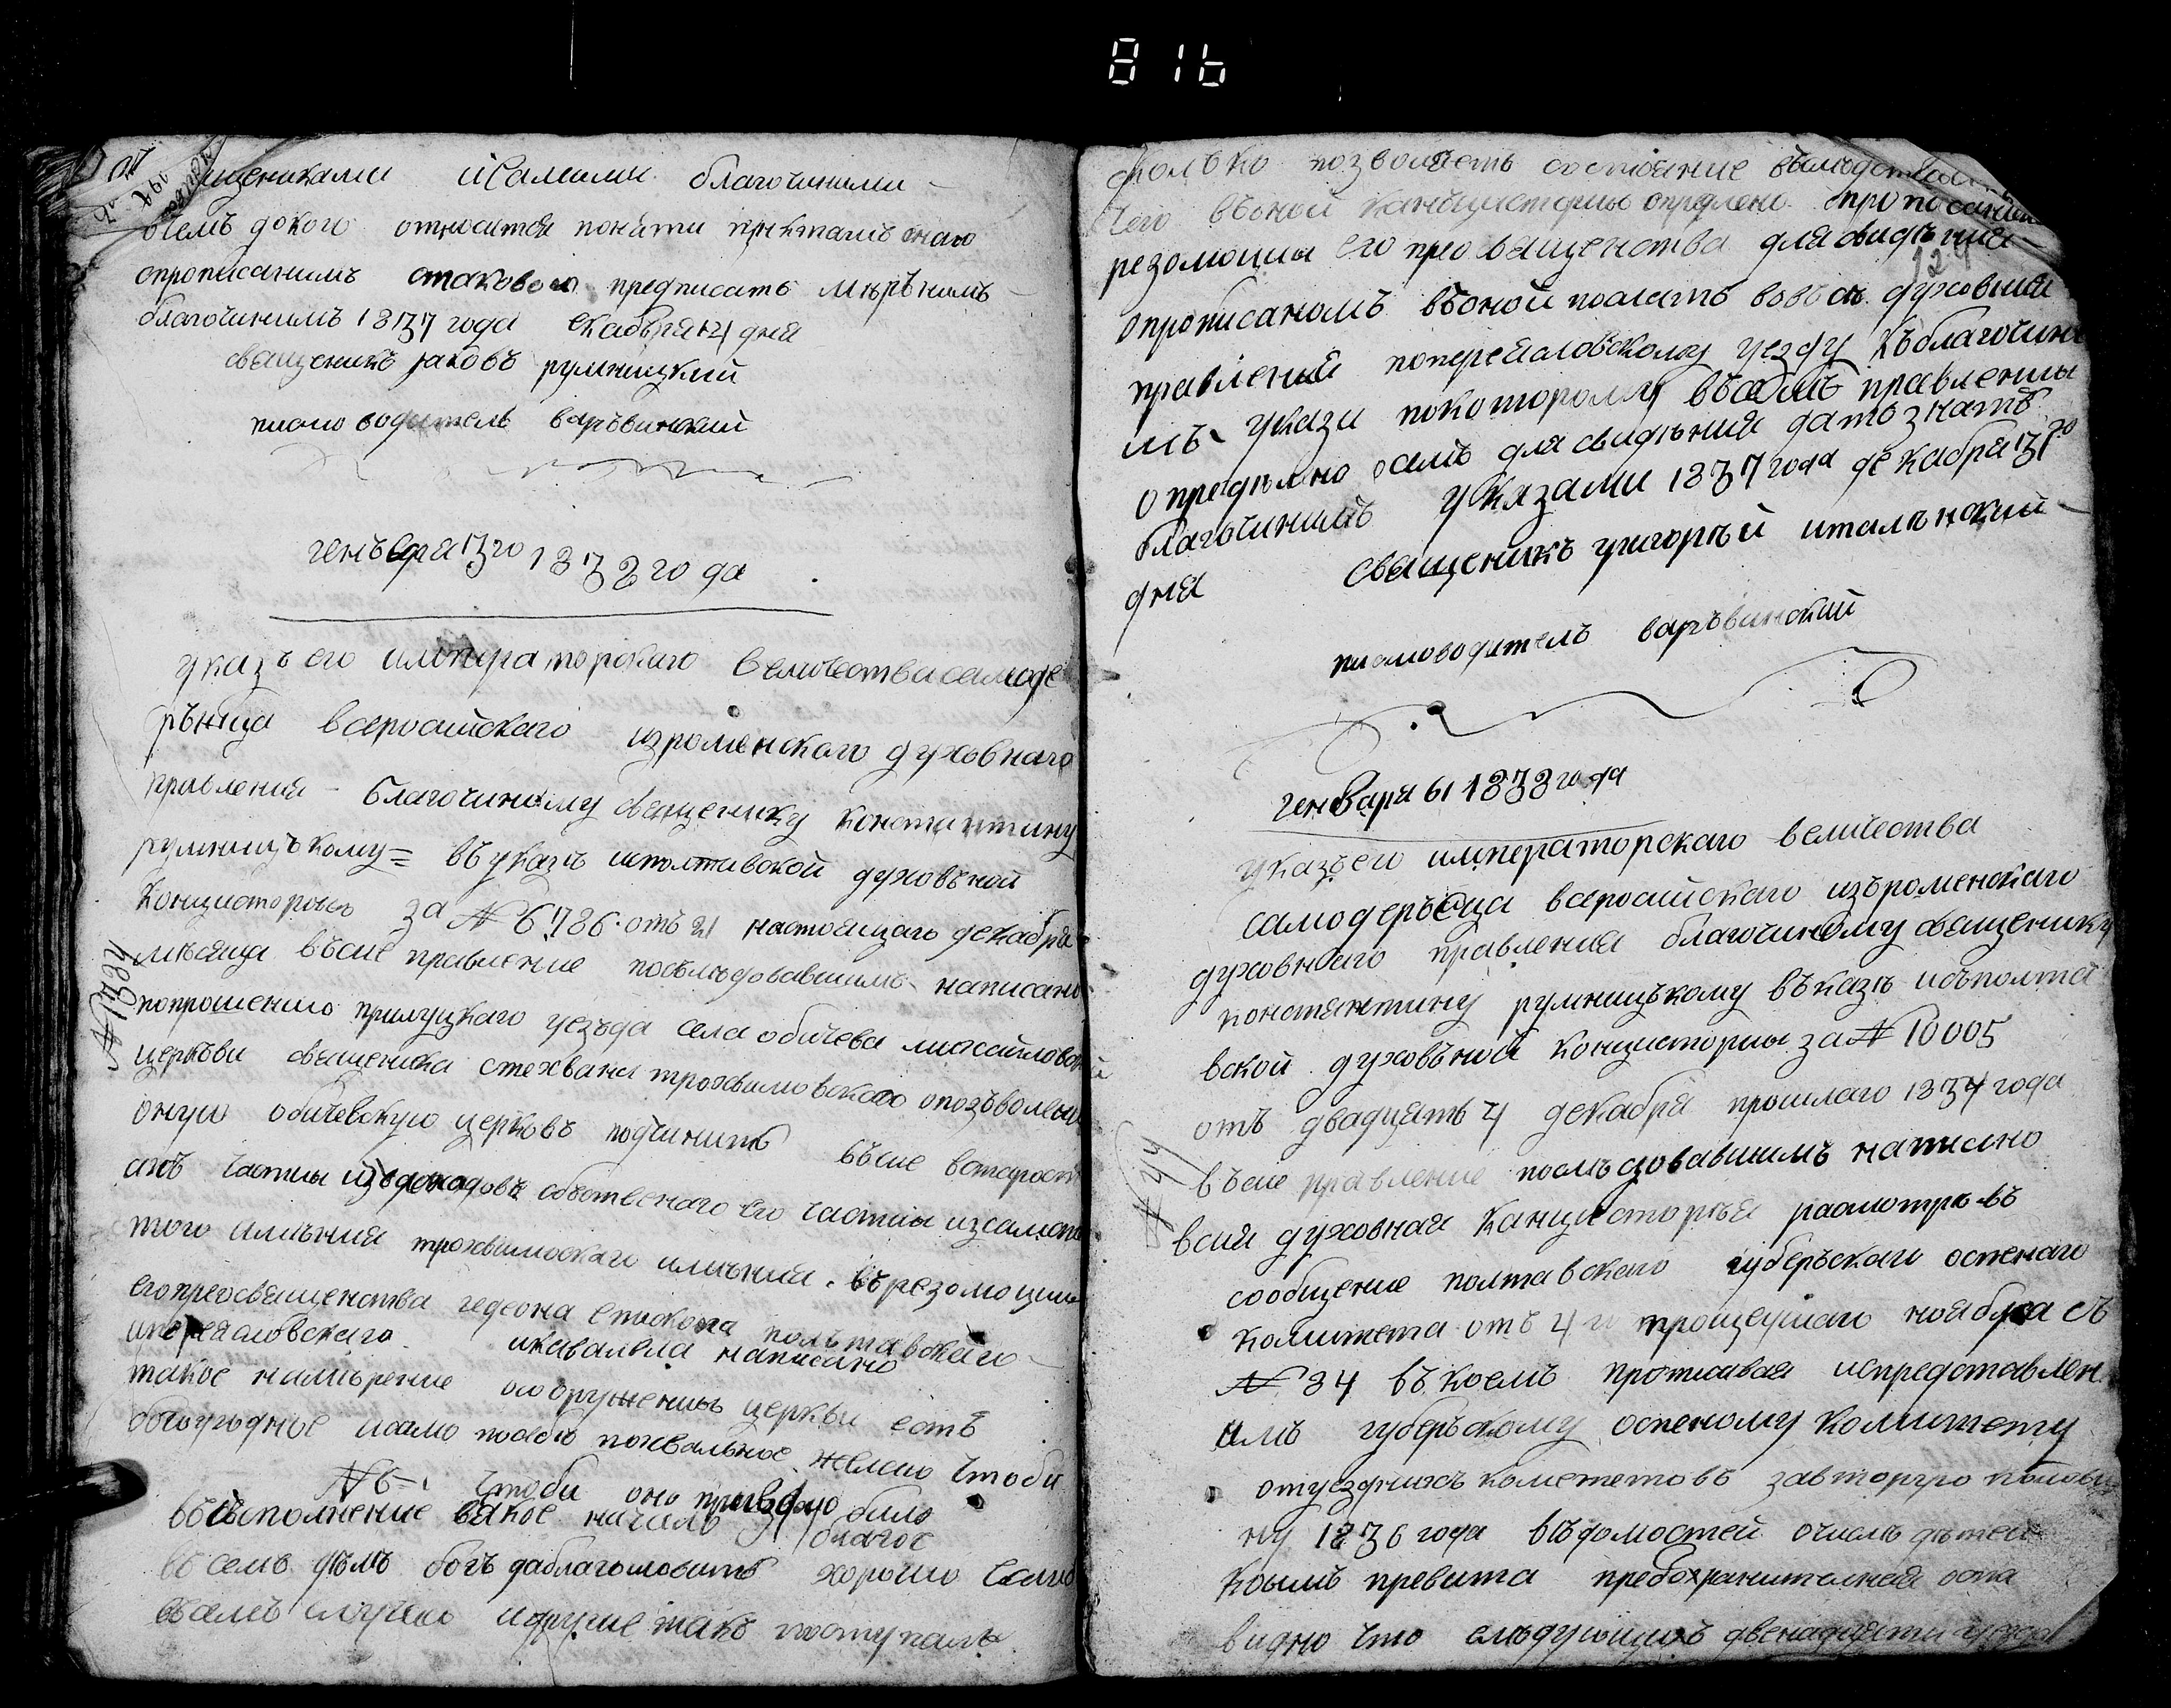 816
щениками исамими благочиними
очемъ докого относится поняти притамъ
опрописанимъ стаковою предписать
благочинимъ 1837 года екабъря 4 дня
священикъ яковъ румницкий
писмоводитель варъвинский
генъваря 13го 1838 го да
указъ его императорскаго величествасамоде
ръжца всеросийскаго изроменскаго духовнаго
правления благочиному священику константину
румницъкому = въуказъ исполтавской духовъной
концистории за № 6786 отъ 21 настоящаго декабря
мъсяца въсие правление посълъдовавшимъ написано
попрошению прилуцкаго уезъда села обичева михайловской
церкъви священика стехвана трохвимовскаго опозъволении
оную обичевскую церковъ подчинить въсие
частии изъдоходовъ собственаго его частии
того имъния трохвимовскаго имъния. върезолюции
егопреосвященства гедеона епископа полътавскаго
ипереясловскаго икавалъра написано
такое намърение осооружении церкви есть
богоугодное исамо посебъ похвальное желаю чтоби
№ 6 = чтоби оно приведено било
въисполнение всякое начало благое
всемъ дълъ богъ даблагословить хорошо
въсемъ случаъ идругие такъ поступалъ
№ 1684
сколько позволяеть состояние
чего въоной канъцистории опрдлено опрописании
резолюции его преосвященства для свидъния
124
опрописаномъ въоной послать вовсъ духовния
правления попереясловскому уезду къблагочини
мъ укази покоторому въсемъ правлении
опредълено осемъ для свидъния дать знать
благочинимъ указами 1837 года декабря 31го
дня священикъ григорий италънский
писмоводитель варъвинский
генъваря 61 1838 года
указъ его императорскаго величества
самодеръжца всеросийскаго изъроменскаго
духовнаго правления благочиному священику
константину румницъкому въказъ изъполта
вской духовъной концистории за № 10005
отъ двадцять 4 декабря прошлаго 1837 года
въсие правление послъдовавшимъ написано
всия духовная канцисторъя расмотръвъ
сообщение полтавскаго губеръскаго оспенаго
комитета отъ 4 го прощедшаго ноября съ
№ 34 въ коемъ прописавая ипредставлен
имъ губеръскому оспеному комитету
отуезднихъ комететовъ завторую полови
ну 1836 года въдомостей очислъ дътей
коимъ превита предохранителная оспа
видно что слъдующихъ двенадцяти уезда
№ 44